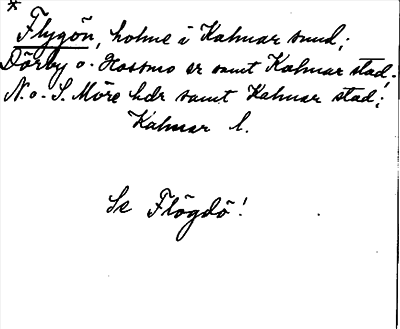 *
Flygön, holme i Kalmar sund;
Dörby o. Hossmo sr samt Kalmar stad,
N. o. S. Möre hdr samt Kalmar stad;
Kalmar l.
Se Flögdö!